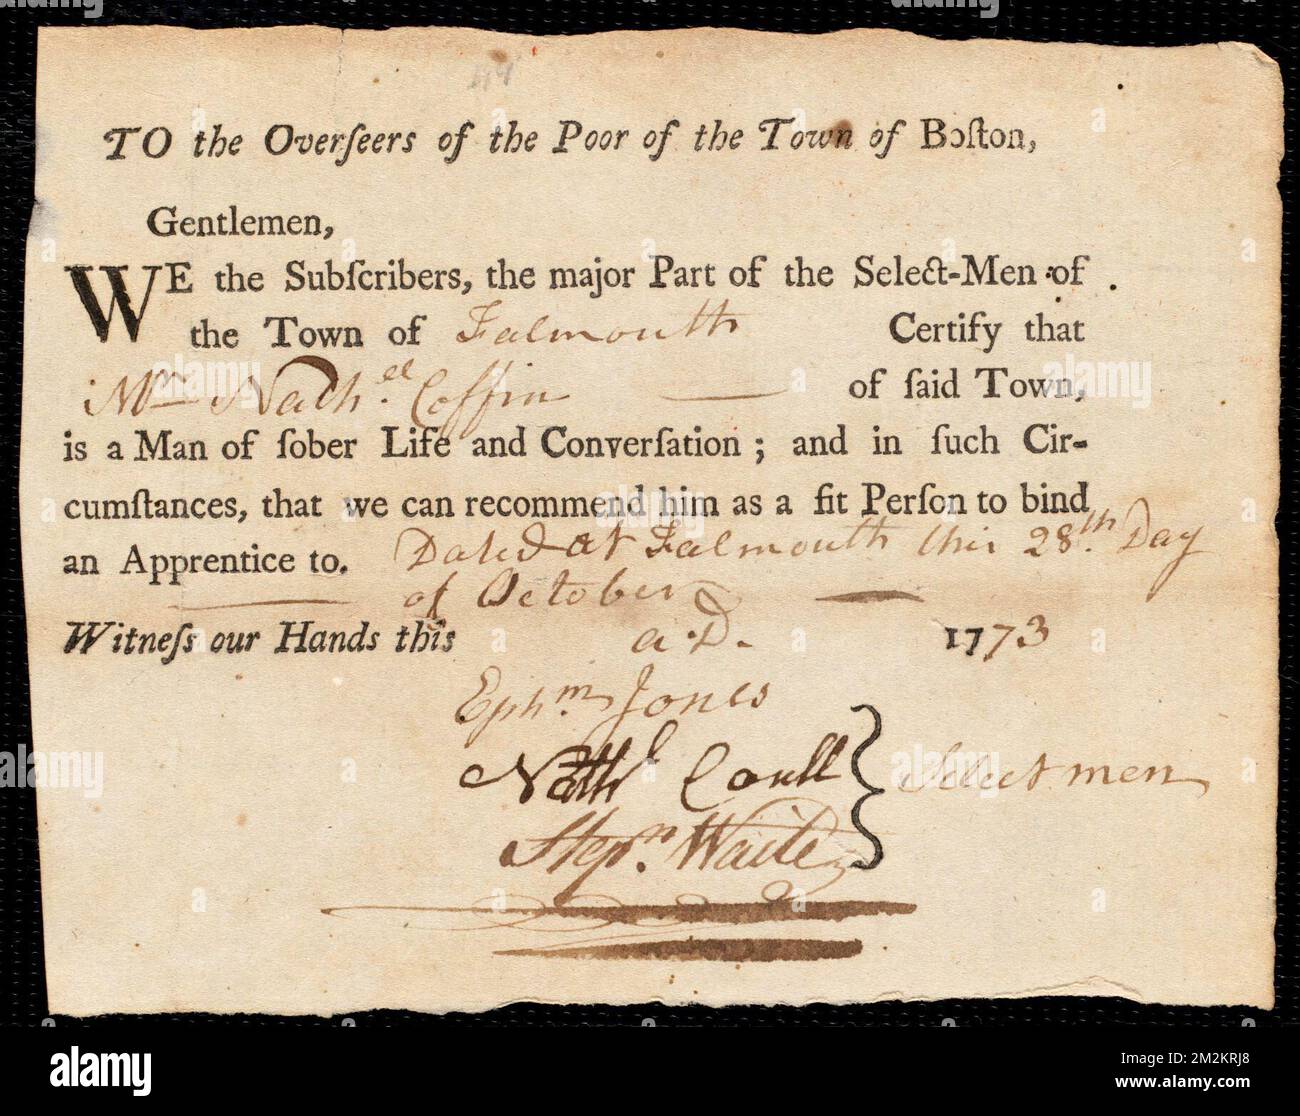 TO the Overſeers of the Poor of the Town of Boſton,
Gentlemen,
WE the Subſcribers, the major Part of the Select-Men of
the Town of Falmouth Certify that
Mr Nath.el Coffin of ſaid Town,
is a Man of ſober Life and Converſation; and in ſuch Cir-
cumſtances, that we can recommend him as a fit Perſon to bind
an Apprentice to. Dated at Falmouth this 28.th Day
of October
Witneſs our Hands this a.D. 1773
Ephm. Jones
Nathl Coull
Stepn. Waite
Selectmen
alamy
Image ID: 2M2KRJ8
www.alamy.com